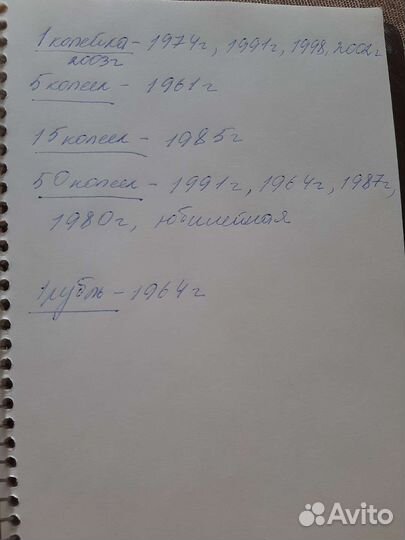 1 копейка - 1974г, 1991г, 1998, 2002г
2003г
5 копеек - 1961г
15 копеек - 1985г
50 копеек - 1991г, 1964г, 1987г,
1980г, юбилейная
1 рубль - 1964г
Avito